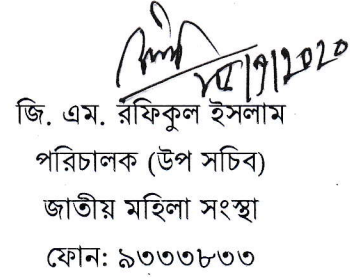 জি. এম. রফিকুল ইসলাম
পরিচালক (উপ সচিব)
জাতীয় মহিলা সংস্থা
ফোন: ৯৩৩৩৮৩৩